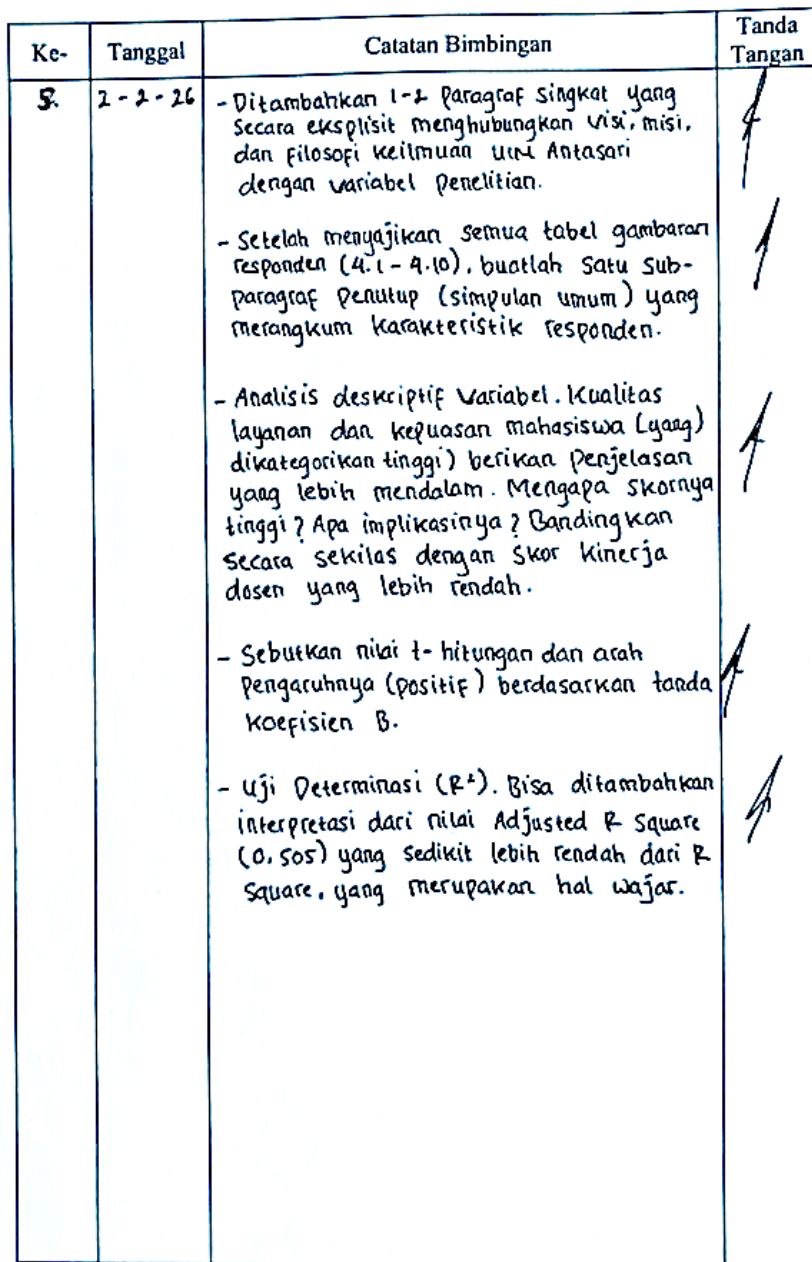 Ke- Tanggal Catatan Bimbingan Tanda Tangan
5. 2-2-26 - Ditambahkan 1-2 Paragraf singkat yang
secara eksplisit menghubungkan visi, misi,
dan Filosofi keilmuan UIN Antasari
dengan variabel Penelitian.
- Setelah menyajikan semua tabel gambaran
responden (4.1 - 4.10), buatlah satu sub-
paragraf Penutup (simpulan umum) yang
merangkum karakteristik responden.
- Analisis deskriptif variabel. Kualitas
layanan dan kepuasan mahasiswa (yang)
dikategorikan tinggi) berikan Penjelasan
yang lebih mendalam. Mengapa skornya
tinggi? Apa implikasinya? Bandingkan
secara sekilas dengan skor kinerja
dosen yang lebih rendah.
- Sebutkan nilai t-hitungan dan arah
Pengaruhnya (positif) berdasarkan tanda
koefisien B.
- Uji Determinasi (R²). Bisa ditambahkan
interpretasi dari nilai Adjusted R Square
(0,505) yang sedikit lebih rendah dari R
square, yang merupakan hal wajar.